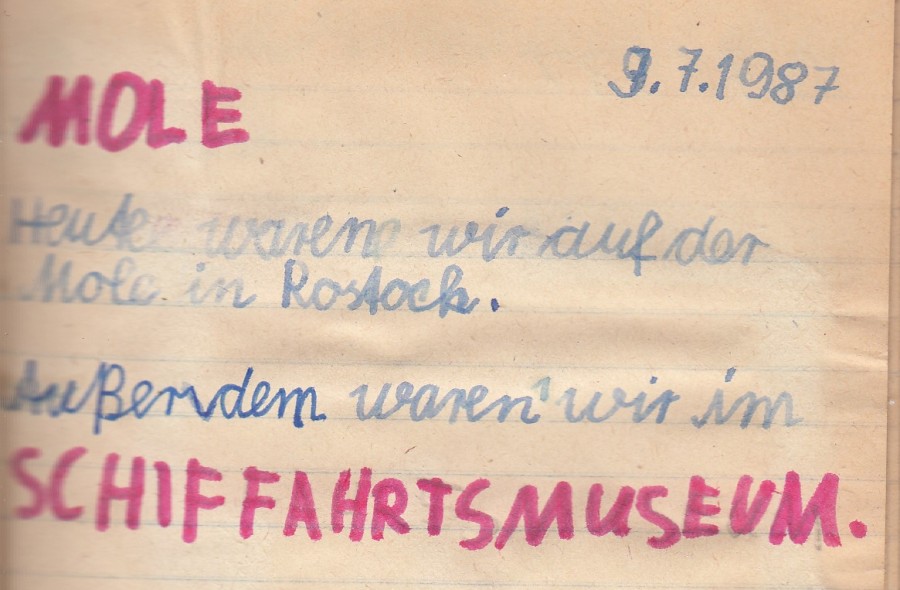 9.7.1987
MOLE
Heute waren wir auf der
Mole in Rostock.
Außerdem waren wir im
SCHIFFAHRTSMUSEUM.